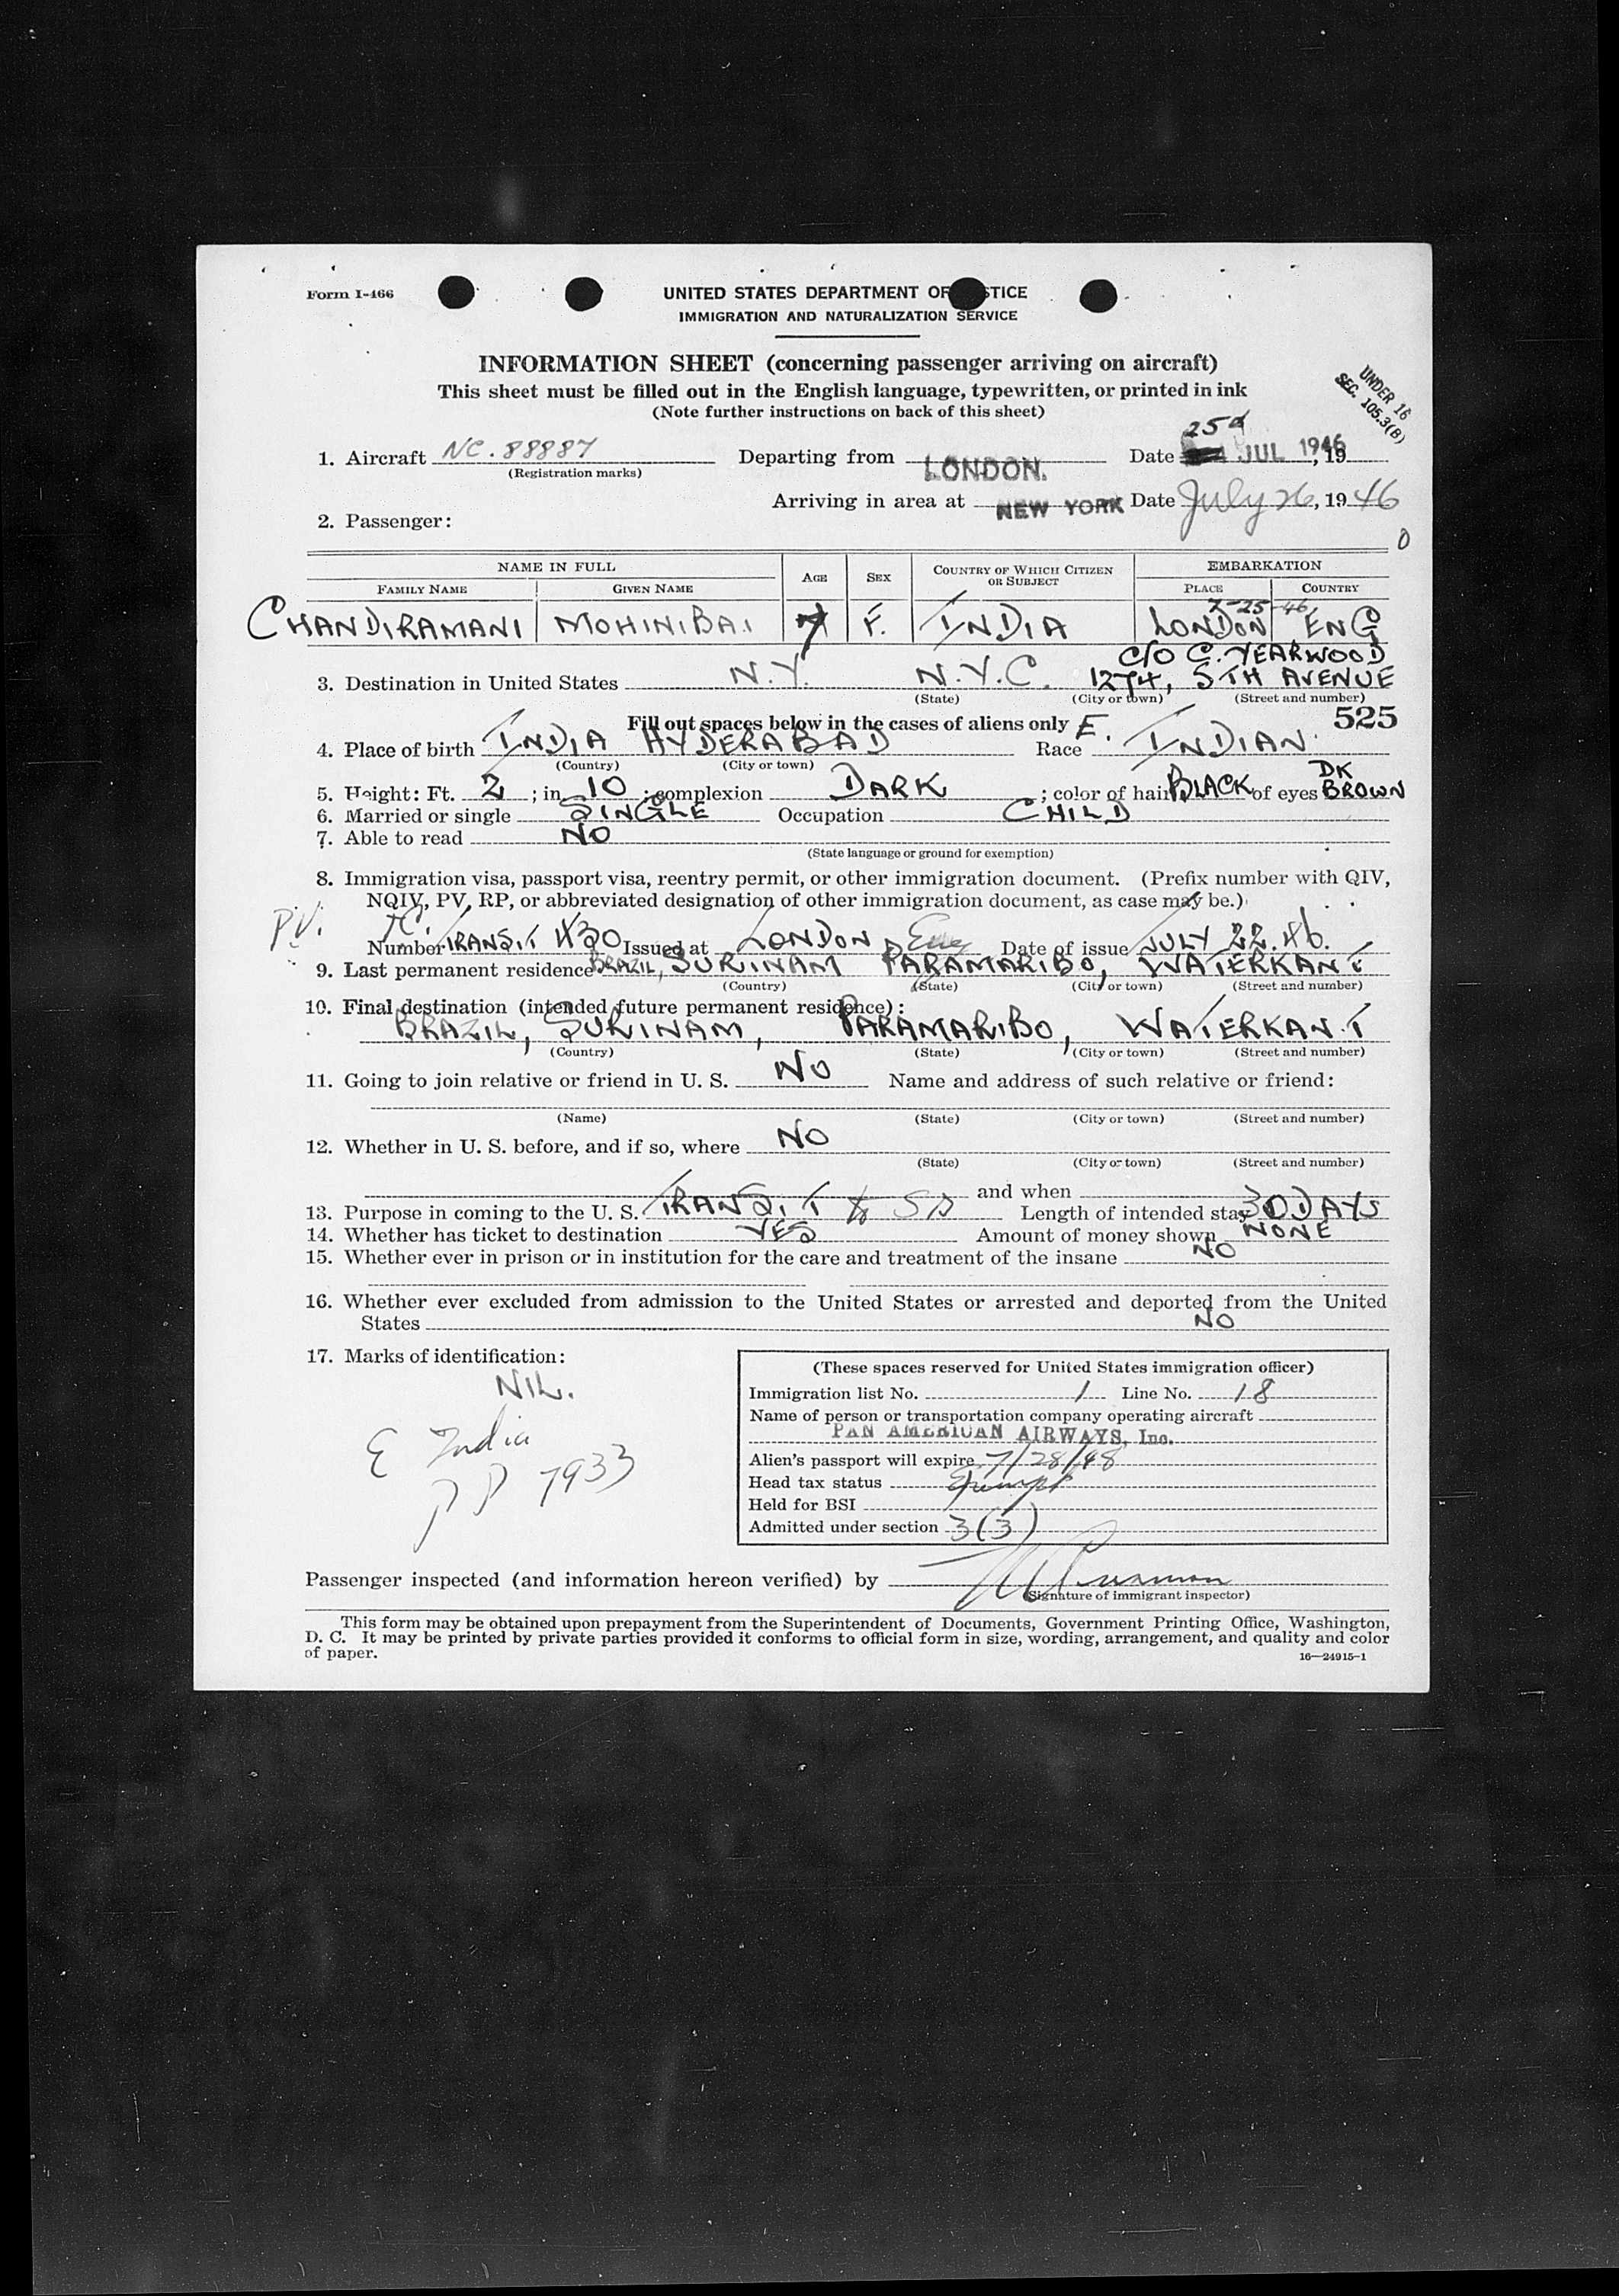 Form I-466
UNITED STATES DEPARTMENT OF JUSTICE
IMMIGRATION AND NATURALIZATION SERVICE
INFORMATION SHEET (concerning passenger arriving on aircraft)
This sheet must be filled out in the English language, typewritten, or printed in ink
(Note further instructions on back of this sheet)
UNDER 16
SEC. 105.3(B)
25th
1. Aircraft NC. 88887 Departing from LONDON. Date JUL 1946, 19
(Registration marks)
Arriving in area at NEW YORK Date July 26, 1946
2. Passenger:
0
NAME IN FULL AGE SEX COUNTRY OF WHICH CITIZEN OR SUBJECT EMBARKATION
FAMILY NAME GIVEN NAME PLACE COUNTRY
7-25-46
CHANDIRAMANI MOHINIBAI 7 F. INDIA LONDON ENG
C/O C. YEARWOOD
3. Destination in United States N.Y. N.Y.C. 1274, 5TH AVENUE
(State) (City or town) (Street and number)
Fill out spaces below in the cases of aliens only 525
4. Place of birth INDIA HYDERABAD Race E. INDIAN
(Country) (City or town)
5. Height: Ft. 2; in. 10; complexion DARK; color of hair BLACK of eyes DK BROWN
6. Married or single SINGLE Occupation CHILD
7. Able to read NO
(State language or ground for exemption)
8. Immigration visa, passport visa, reentry permit, or other immigration document. (Prefix number with QIV,
NQIV, PV, RP, or abbreviated designation of other immigration document, as case may be.)
PV.
Number TRANSIT 430 Issued at LONDON Eng Date of issue JULY 22. 46.
9. Last permanent residence BRAZIL, SURINAM PARAMARIBO, WATERKANT
(Country) (State) (City or town) (Street and number)
10. Final destination (intended future permanent residence):
BRAZIL, SURINAM, PARAMARIBO, WATERKANT
(Country) (State) (City or town) (Street and number)
11. Going to join relative or friend in U. S. NO Name and address of such relative or friend:
(Name) (State) (City or town) (Street and number)
12. Whether in U. S. before, and if so, where NO
(State) (City or town) (Street and number)
and when
13. Purpose in coming to the U. S. TRANSIT to SA Length of intended stay 30 DAYS
14. Whether has ticket to destination YES Amount of money shown NONE
15. Whether ever in prison or in institution for the care and treatment of the insane NO
16. Whether ever excluded from admission to the United States or arrested and deported from the United
States NO
17. Marks of identification:
NIL.
E India
PP 7933
(These spaces reserved for United States immigration officer)
Immigration list No. 1 Line No. 18
Name of person or transportation company operating aircraft
PAN AMERICAN AIRWAYS, Inc.
Alien's passport will expire 7/28/48
Head tax status Exempt
Held for BSI
Admitted under section 3(3)
Passenger inspected (and information hereon verified) by
(Signature of immigrant inspector)
This form may be obtained upon prepayment from the Superintendent of Documents, Government Printing Office, Washington,
D. C. It may be printed by private parties provided it conforms to official form in size, wording, arrangement, and quality and color
of paper.
16—24915-1